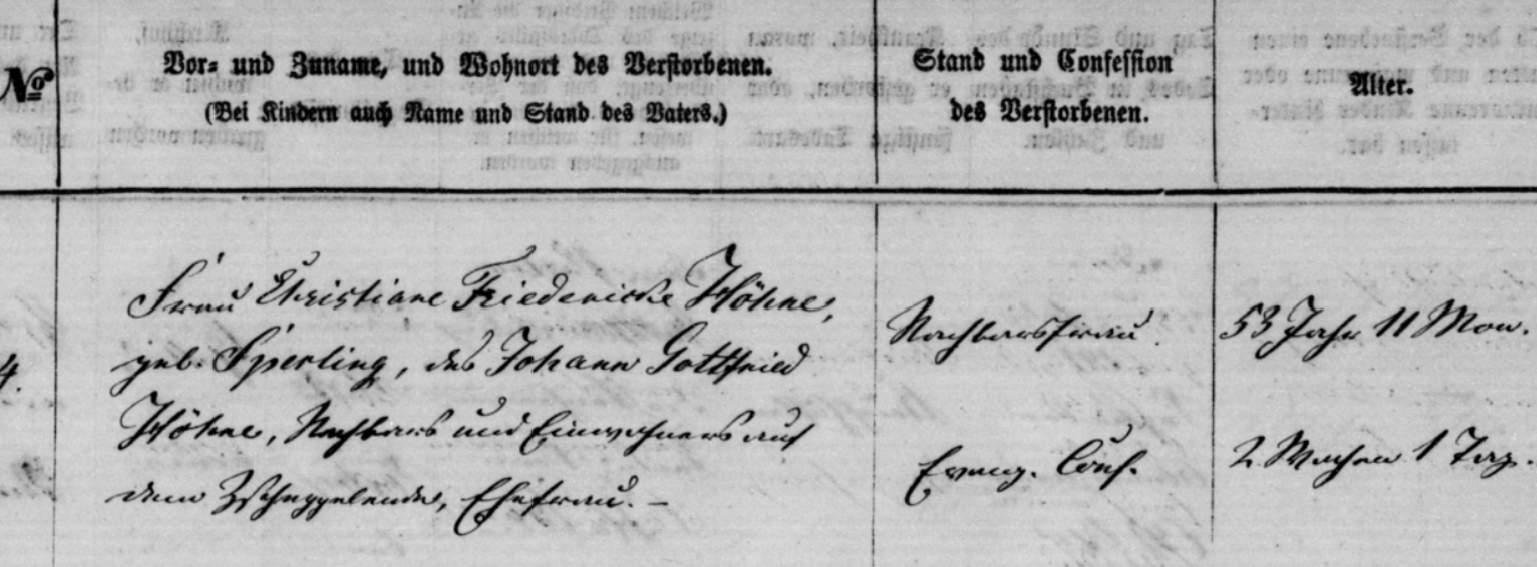 №
Vor= und Zuname, und Wohnort des Verstorbenen.
(Bei Kindern auch Name und Stand des Vaters.)
Stand und Confession
des Verstorbenen.
Alter.
4.
Frau Christiane Friedericke Höhne,
geb. Sperling, des Johann Gottfried
Höhne, Nachbars und Einwohners auf
dem Zscheppelende, Ehefrau. –
Nachbarsfrau.
Evang. Conf.
53 Jahr 11 Mon.
2 Wochen 1 Tag.